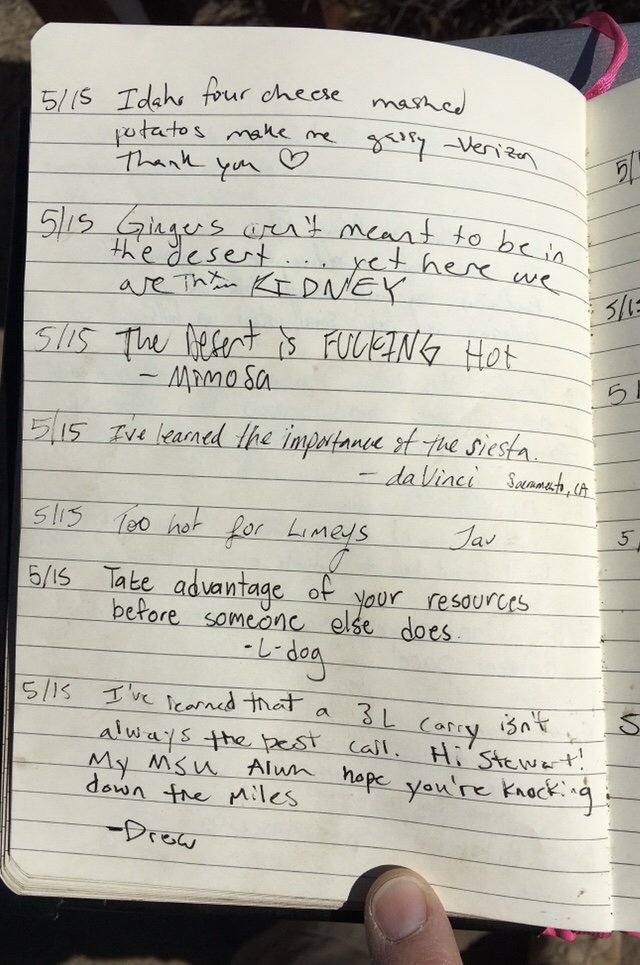 5/15 Idaho four cheese mashed
potatos make me gassy -Verizon
Thank you ♡
5/15 Gingers aren't meant to be in
the desert... yet here we
are KIDNEY
5/15 The Desert is FUCKING HOT
- MIMOSA
5/15 I've learned the importance of the siesta.
- daVinci Sacramento, CA
5/15 Too hot for Limeys Jav
5/15 Take advantage of your resources
before someone else does.
-L-dog
5/15 I've learned that a 3L carry isn't
always the best call. Hi Stewart!
My MSU Alum hope you're knocking
down the miles
-Drew
5/
5/1
5
5/
5